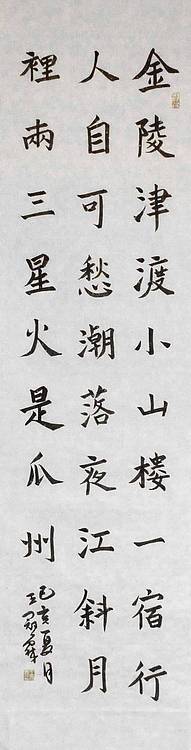 金陵津渡小山楼一宿行
人自可愁潮落夜江斜月
裡兩三星火是瓜州
己亥夏月